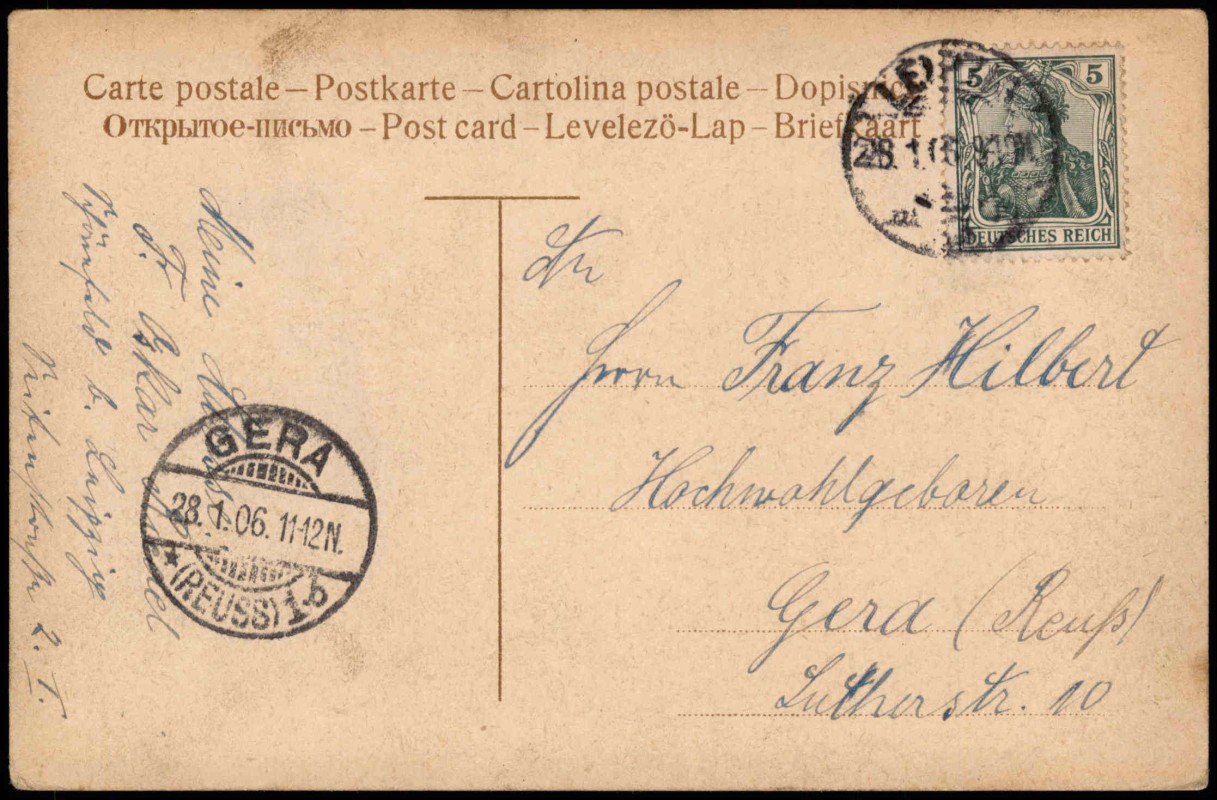 Carte postale – Postkarte – Cartolina postale – Dopisnice
Открытое-письмо – Post card – Levelező-Lap – Briefkaart
LEIPZIG
28.1.06.
5 5
DEUTSCHES REICH
An
Herrn Franz Hilbert
Hochwohlgeboren
Gera (Reuß)
Lutherstr. 10
Meine
F. Oskar
Schönefeld b. Leipzig
2. I.
GERA
28.1.06. 11-12N.
★ (REUSS) 1.b